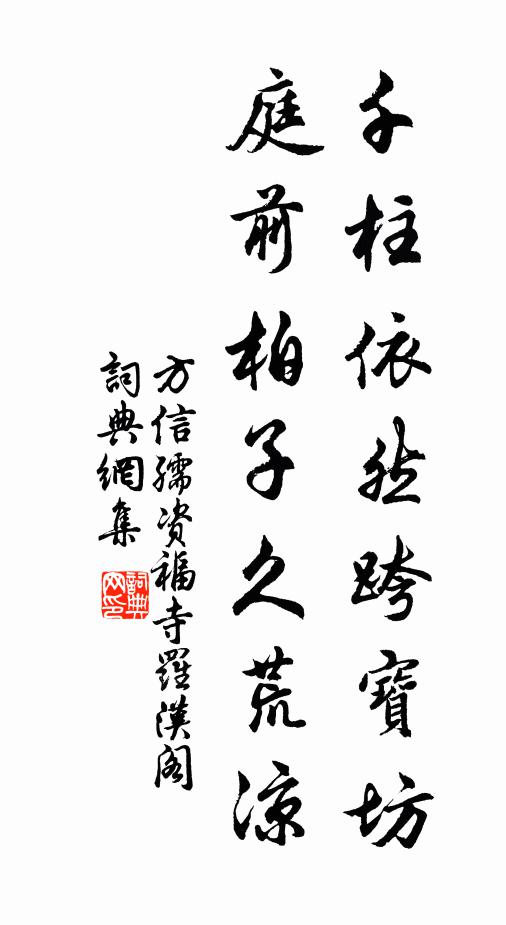 千柱依然跨寶坊
庭前柏子久荒涼
方信孺资福寺羅漢阁
詞典網集
詞典网印